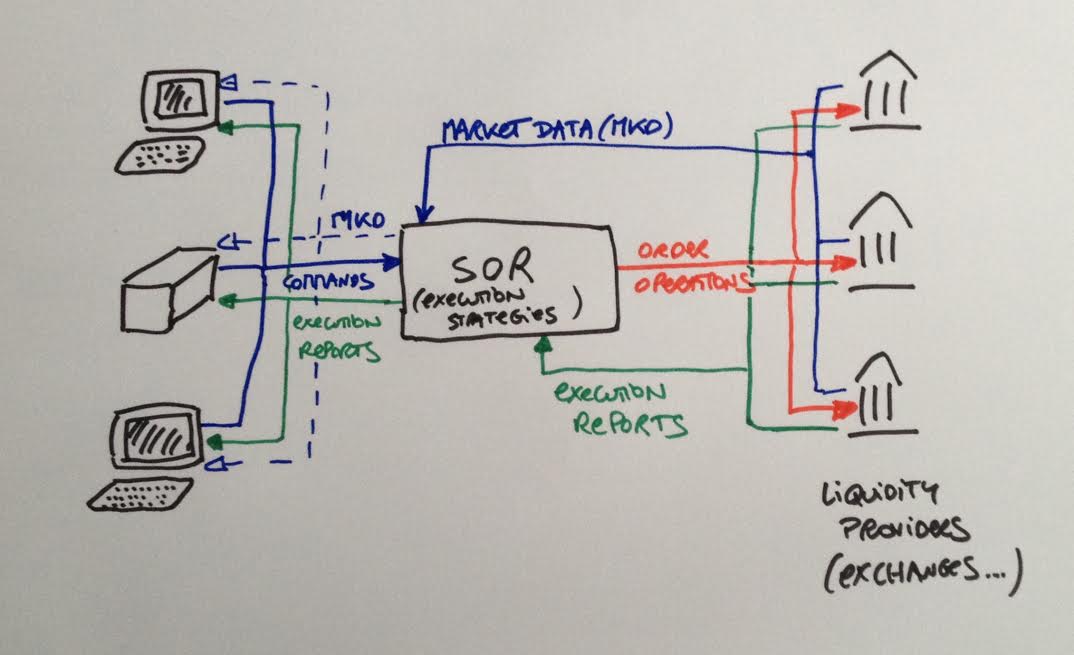 MARKET DATA (MKD)
MKD
COMMANDS
EXECUTION
REPORTS
SOR
(EXECUTION
STRATEGIES)
ORDER
OPERATIONS
EXECUTION
REPORTS
LIQUIDITY
PROVIDERS
(EXCHANGES...)